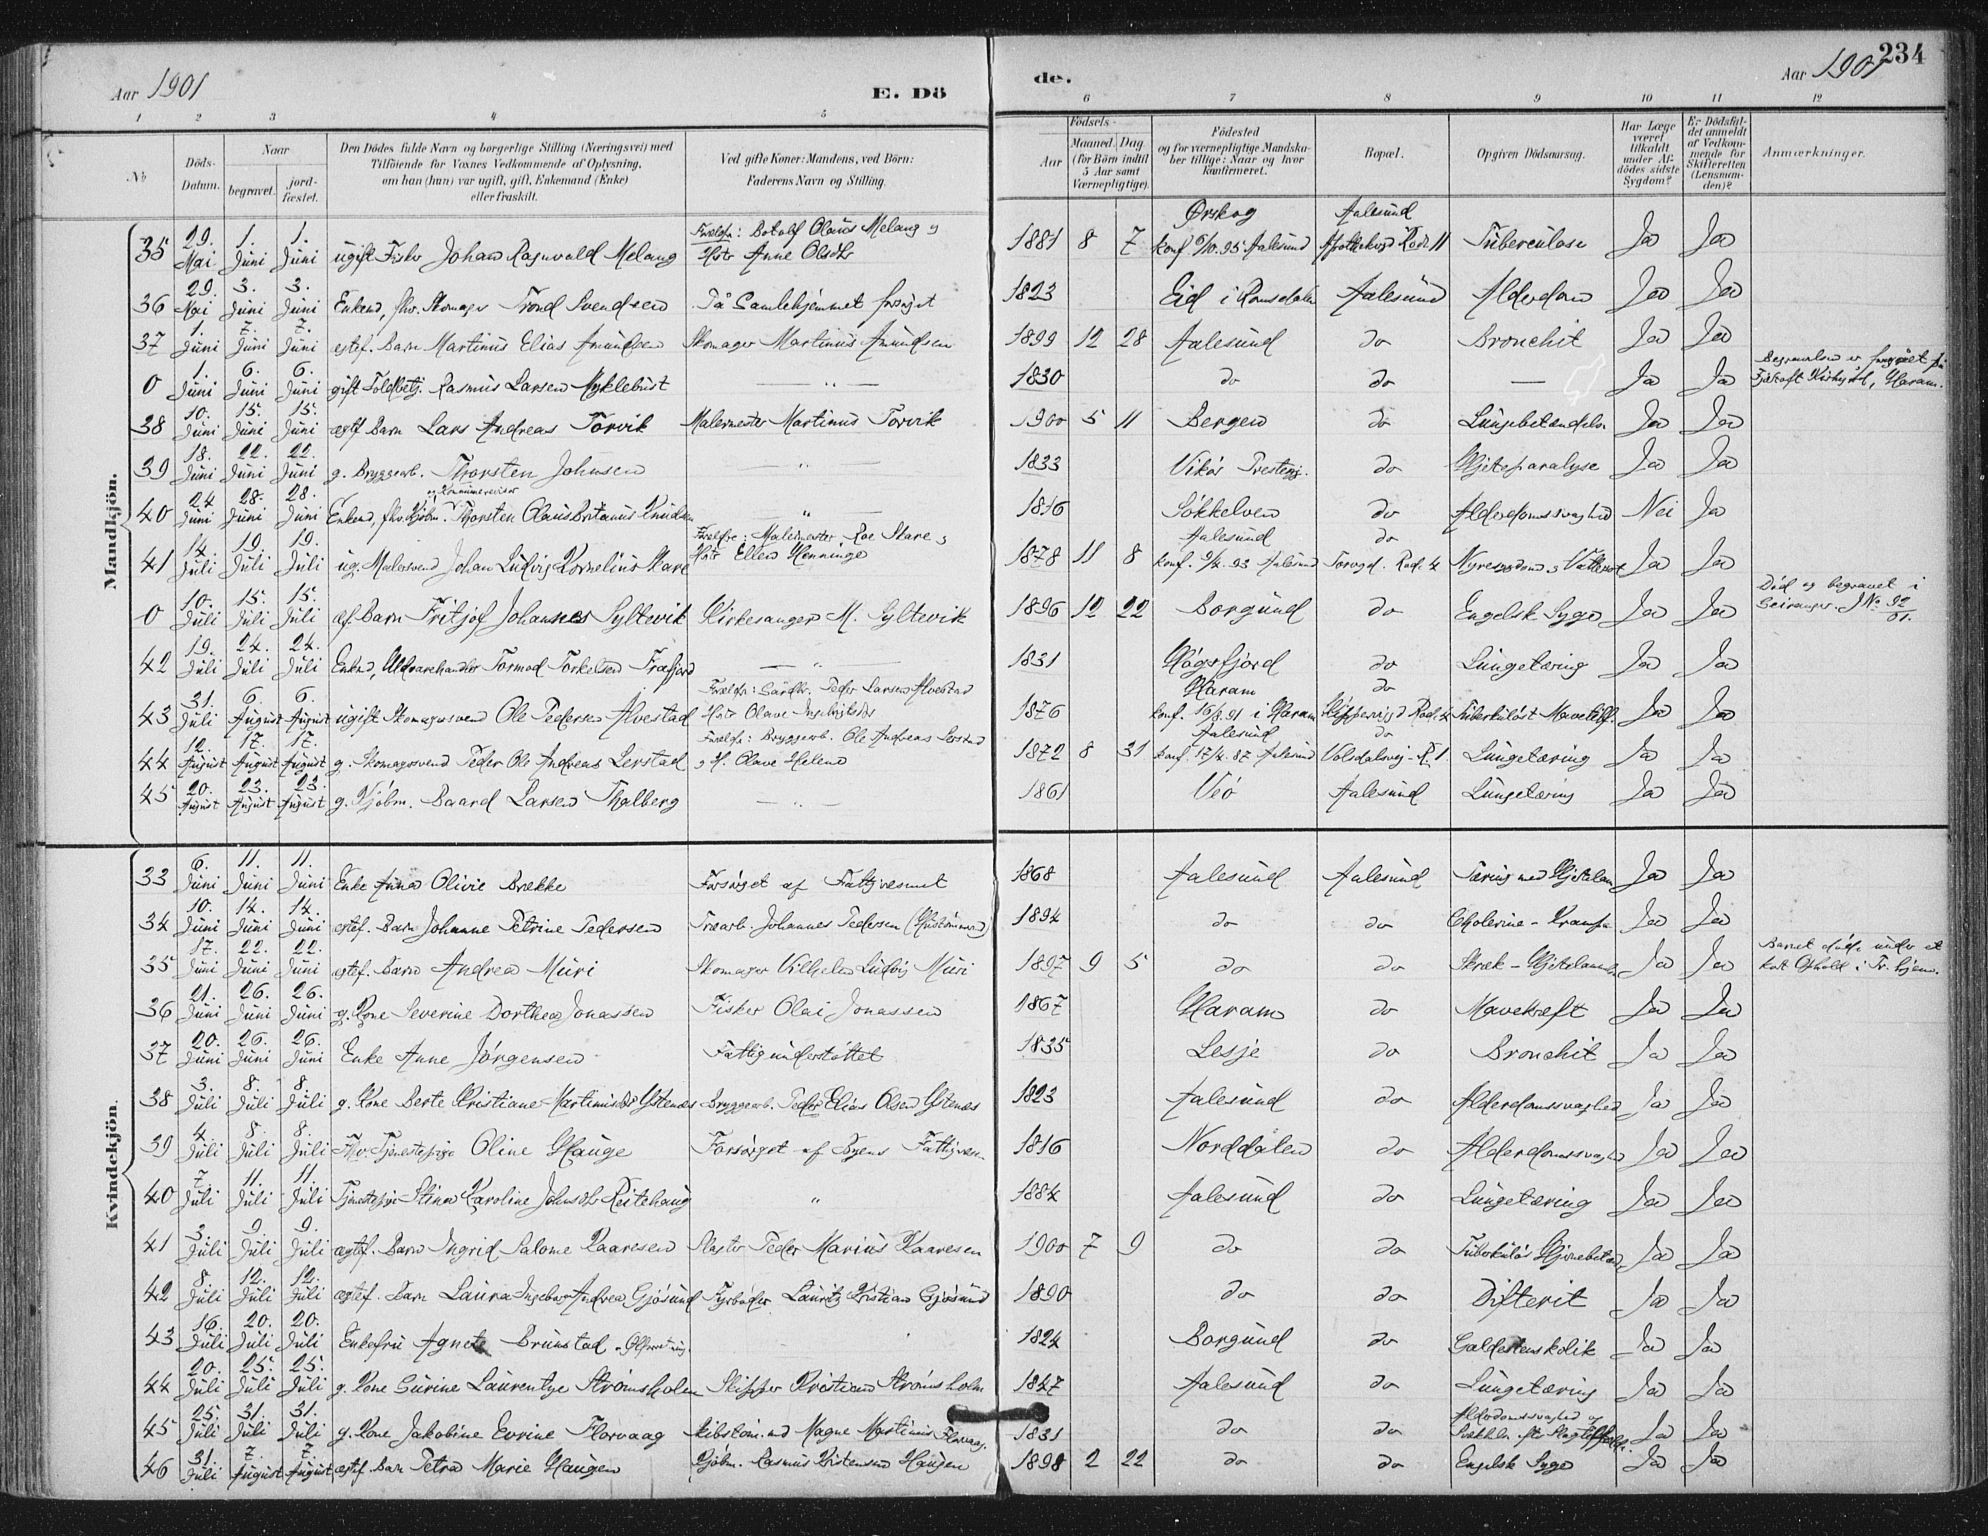 Aar 1901
E. Dö
de.
Aar 1901
234
1 2 3 4 5 6 7 8 9 10 11 12
№ Döds-Datum. Naar begravet. jordfæstet. Den Dödes fulde Navn og borgerlige Stilling (Næringsvei) med Tilföiende for Voxnes Vedkommende af Oplysning, om han (hun) var ugift, gift, Enkemand (Enke) eller fraskilt. Ved gifte Koner: Mandens, ved Börn: Faderens Navn og Stilling. Födsels- Aar Maaned. Dag. (for Börn indtil 5 Aar samt Værnepligtige). Födested og for værnepligtige Mandskaber tillige: Naar og hvor konfirmeret. Bopæl. Opgiven Dödsaarsag. Har Læge været tilkaldt under Afdödes sidste Sygdom? Er Dödsfaldet anmeldt af Vedkommende for Skifteretten (Lensmanden)? Anmærkninger.
Mandkjön.
35 29. Mai 1. Juni 1. Juni ugift Fisker Johan Ragnvald Melang Forældre: Botolf Olaus Melang og Hstr Anne Olsdtr 1881 8 7 Ørskog konf. 6/10.95 Aalesund Aalesund Apothekergd Rode 11 Tuberculose Ja Ja
36 29. Mai 3. Juni 3. Juni Enkem., fhv. Skomager Trond Svendsen På Gamlehjemmet forsørget 1823 Eid i Romsdalen Aalesund Alderdom Ja Ja
37 1. Juni 7. Juni 7. Juni egtef. Barn Martinus Elias Amundsen Skomager Martinus Amundsen 1899 12 28 Aalesund do Bronchit Ja Ja
0 1. Juni 6. Juni 6. Juni gift Toldbetj. Rasmus Larsen Myklebust — " — 1830 do do — Ja Ja Begravelsen er foregået på Fjærtoft Kirkegrd, Haram.
38 10. Juni 15. Juni 15. Juni egtf Barn Lars Andreas Torvik Malermester Martinus Torvik 1900 5 11 Bergen do Lungebetændelse Ja Ja
39 18. Juni 22. Juni 22. Juni g. Bryggearb. Thorsten Johnsen — " — 1833 Vikør Prestegj. do Hjerteparalyse Ja Ja
40 24 Juni 28. Juni 28. Juni Enkem, fhv. Kjøbm. og Kommunerevisor Thorsten Olaus Britanus Knudsen — " — 1816 Søkkelven do Alderdomssvaghed Nei Ja
41 14. Juli 19. Juli 19. Juli ug. Malersvend Johan Ludvig Kornelius Skare Forældre: Malermester Roe Skare og Hstr Ellen Henninge 1878 11 8 Aalesund konf. 9/4.93 Aalesund do Torvgd. Rode 4 Nyresygdom og Vattersot Ja Ja
0 10. Juli 15. Juli 15. Juli æf. Barn Fritjof Johannes Syltevik Kirkesanger M. Syltevik 1896 12 22 Borgund do Engelsk Syge Ja Ja Død og begravet i Geiranger. J No 92/01.
42 19. Juli 24. Juli 24. Juli Enkem, Uldvarehandler Tormod Torkelsen Frafjord — " 1831 Høgsfjord do Lungetæring Ja Ja
43 31. Juli 6. August 6. August ugift Skomagersvend Ole Pedersen Alvestad Forældre: Gårdbr. Peder Larsen Alvestad Hstr Olave Ingebrigtsdtr 1876 Haram konf. 16/8.91 i Haram do Skippervigd Rode 4 Tuberkuløst Mavetilf. Ja Ja
44 12. August 17. August 17. August g. Skomagersvend Peder Ole Andreas Lerstad Forældre: Bryggearb. Ole Andreas Lerstad og H. Olave Helene 1872 8 31 Aalesund konf. 17/4.87 Aalesund do Volsdalsvej - R. 1. Lungetæring Ja Ja
45 20. August 23. August 23. August g. Kjøbm. Baard Larsen Thalberg — " — 1861 Veø Aalesund Lungetæring Ja Ja
Kvindekjön.
33 6. Juni 11. Juni 11. Juni Enke Anna Olivie Brække Forsørget af Fattigvesenet 1868 Aalesund Aalesund Tæring med Hjertelam Ja Ja
34 10. Juni 14. Juni 14. Juni egtef. Barn Johanne Petrine Pedersen Træarb. Johannes Pedersen (Hustømmerm.) 1894 do do Cholerine - Krampe Ja Ja
35 17. Juni 22. Juni 22. Juni egtef. Barn Andrea Muri Skomager Vilhelm Ludvig Muri 1897 9 5 do do Skræk - Hjertelammelse Ja Ja Barnet døde under et kort Ophold i Tr.hjem.
36 21. Juni 26. Juni 26. Juni g. Kone Severine Dorthea Jonassen Fisker Olai Jonassen 1867 Haram do Mavekræft Ja Ja
37 20. Juni 26. Juni 26. Juni Enke Anne Jørgensen Fattigunderstøttet 1835 Lesje do Bronchit Ja Ja
38 3. Juli 8. Juli 8. Juli g. Kone Berte Kristiane Martinusdtr Ystenæs Bryggearb. Peder Elias Olsen Ystenæs 1823 Aalesund do Alderdomssvaghed Ja Ja
39 4. Juli 8. Juli 8. Juli Fhv. Tjenestepige Oline Hauge Forsørget af Byens Fattigvæsen 1816 Norddalen do Alderdomssvaghed Ja Ja
40 7. Juli 11. Juli 11. Juli Tjenestepige Stina Karoline Johnsdtr Reitehaug " 1884 Aalesund do Lungetæring Ja Ja
41 3. Juli 9. Juli 9. Juli egtef. Barn Ingrid Salome Kaaresen Slagter Peder Marius Kaaresen 1900 7 9 do do Tuberkuløs Hjernebetænd. Ja Ja
42 8. Juli 12. Juli 12. Juli egtef. Barn Laura Ingeborg Andrea Gjøsund Fyrbøder Lauritz Kristian Gjøsund 1890 do do Difterit Ja Ja
43 16. Juli 20. Juli 20. Juli Enkefru Agnete Brunstad 1824 Borgund do Galdestenskolik Ja Ja
44 20. Juli 25. Juli 25. Juli g. Kone Gurine Laurentze Strømsholm Skipper Kristian Strømsholm 1847 Aalesund do Lungetæring Ja Ja
45 25. Juli 31. Juli 31. Juli g. Kone Jakobine Evrine Florvaag Skibstøm.md Magne Martinus Florvaag. 1831 do do Alderdomssvaghed og Svækkelse efter Slagtilfælde Ja Ja
46 31. Juli 7. August 7. August egtef. Barn Petra Marie Haugen Kjøbm. Rasmus Kristensen Haugen 1898 2 22 do do Engelsk Syge Ja Ja